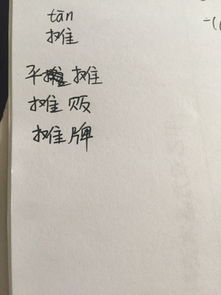 tān
摊
平摊
摊贩
摊牌